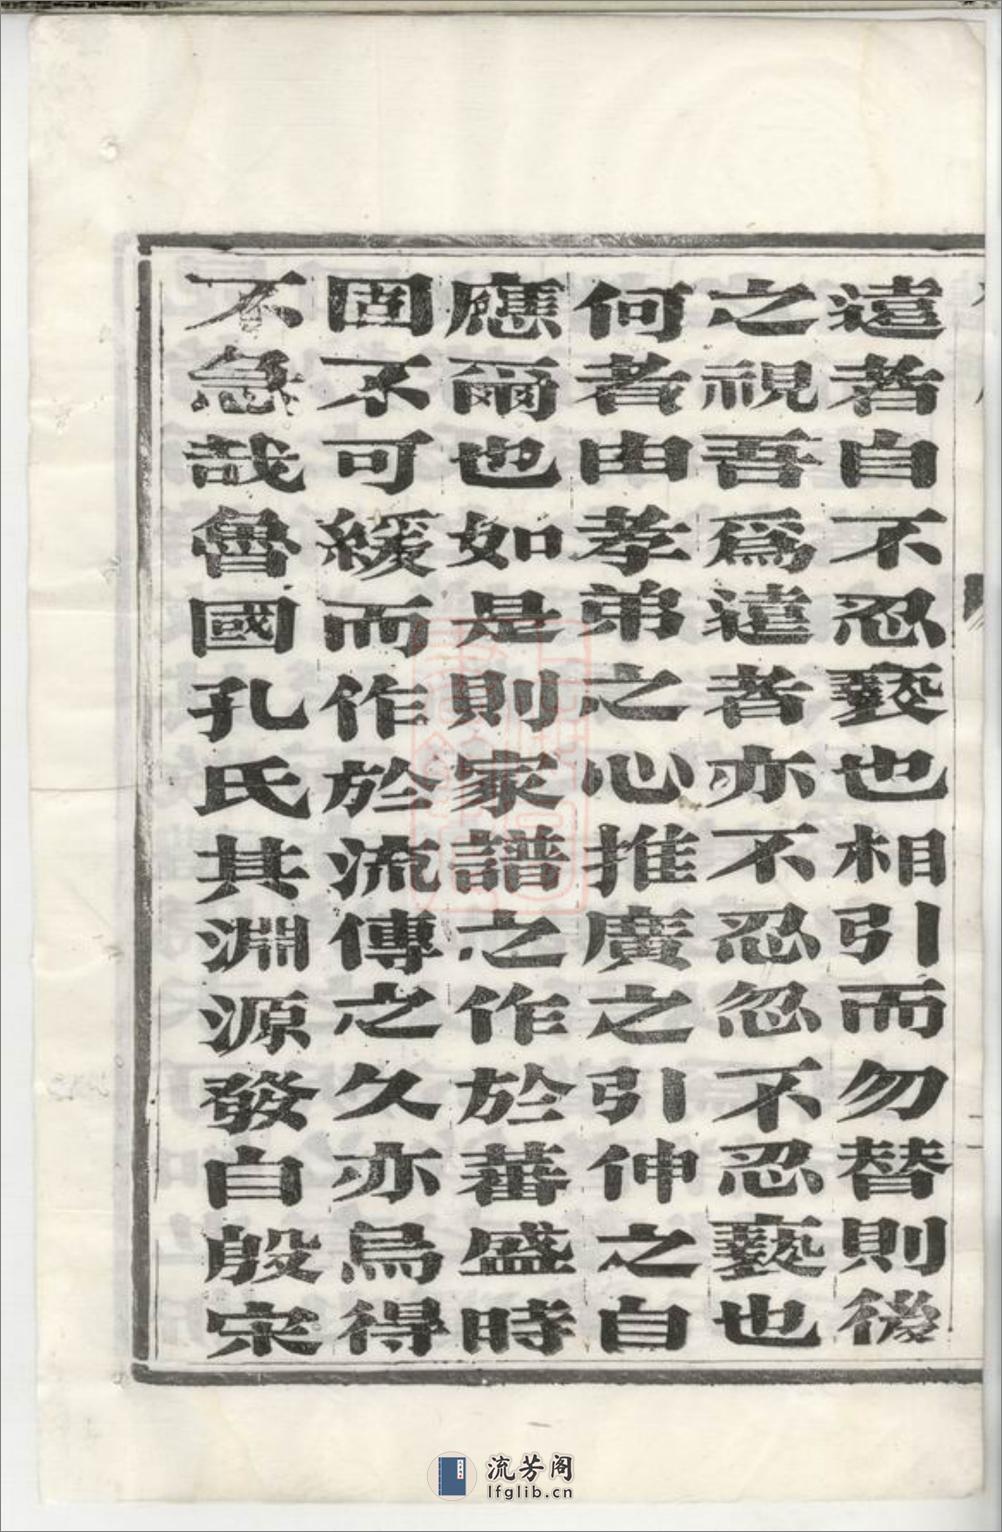 遠者自不忍褻也相引而勿替則後
之視吾爲遠者亦不忍忽不忍褻也
何者由孝弟之心推廣之引伸之自
應爾也如是則家譜之作於蕃盛時
固不可緩而作於流傳之久亦烏得
不急哉魯國孔氏其淵源發自殷宋
流芳阁
lfglib.cn